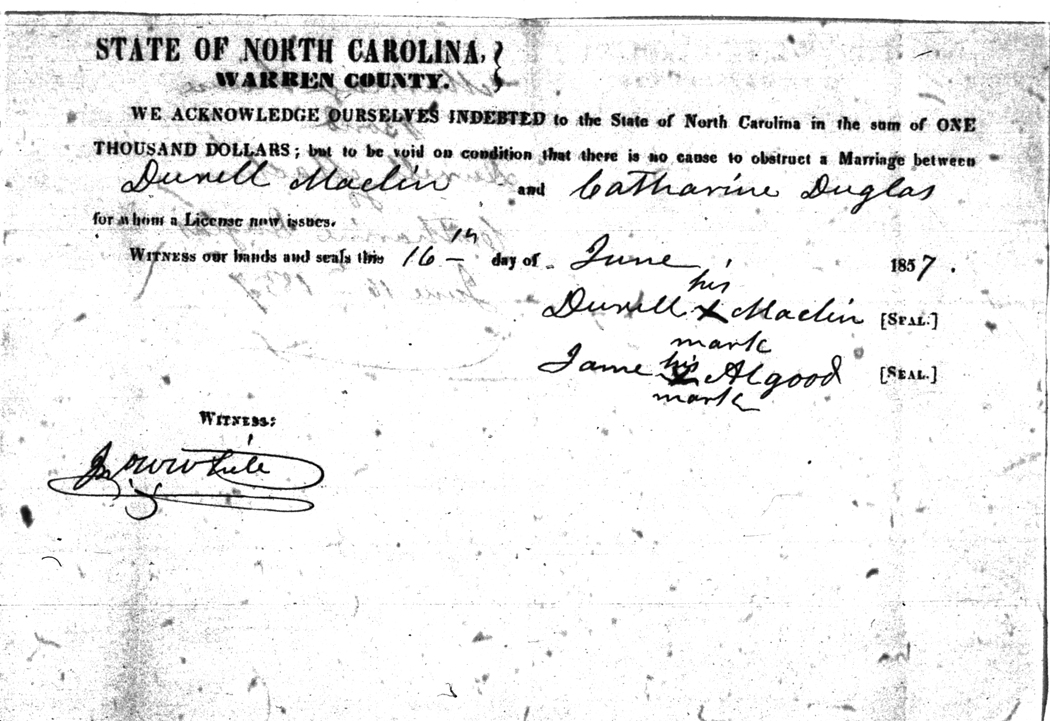 STATE OF NORTH CAROLINA,
WARREN COUNTY.
WE ACKNOWLEDGE OURSELVES INDEBTED to the State of North Carolina in the sum of ONE
THOUSAND DOLLARS; but to be void on condition that there is no cause to obstruct a Marriage between
Durell Maclin and Catharine Duglas
for whom a License now issues.
WITNESS our hands and seals this 16th day of June 1857.
his
Durell X Maclin [SEAL.]
mark
his
Jame X Algood [SEAL.]
mark
WITNESS:
White